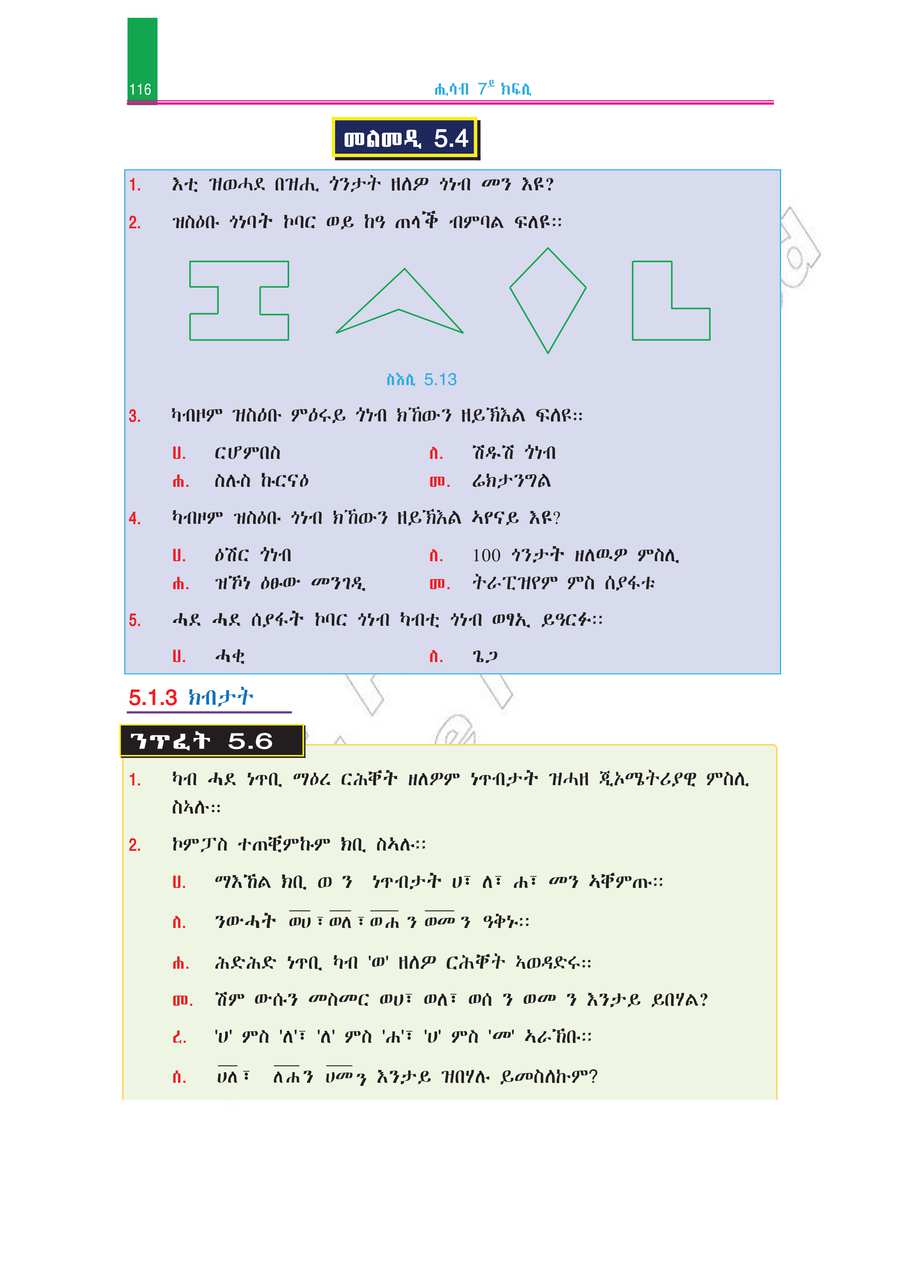 116
ሒሳብ 7ይ ክፍሊ
መልመዲ 5.4
1. እቲ ዝወሓደ በዝሒ ጎንታት ዘለዎ ጎነብ መን እዩ?
2. ዝስዕቡ ጎነባት ኮባር ወይ ከዓ ጠላቕ ብምባል ፍለዩ፡፡
ስእሊ 5.13
3. ካብዞም ዝስዕቡ ምዕሩይ ጎነብ ክኸውን ዘይኽእል ፍለዩ፡፡
ሀ. ርሆምበስ ለ. ሽዱሽ ጎነብ
ሐ. ስሉስ ኩርናዕ መ. ሬክታንግል
4. ካብዞም ዝስዕቡ ጎነብ ክኸውን ዘይኽእል ኣየናይ እዩ?
ሀ. ዕሽር ጎነብ ለ. 100 ጎንታት ዘለዉዎ ምስሊ
ሐ. ዝኾነ ዕፁው መንገዲ መ. ትራፒዝየም ምስ ሰያፋቱ
5. ሓደ ሓደ ሰያፋት ኮባር ጎነብ ካብቲ ጎነብ ወፃኢ ይዓርፉ፡፡
ሀ. ሓቂ ለ. ጌጋ
5.1.3 ክብታት
ንጥፈት 5.6
1. ካብ ሓደ ነጥቢ ማዕረ ርሕቐት ዘለዎም ነጥብታት ዝሓዘ ጂኦሜትሪያዊ ምስሊ
ስኣሉ፡፡
2. ኮምፓስ ተጠቒምኩም ክቢ ስኣሉ፡፡
ሀ. ማእኸል ክቢ ወ ን ነጥብታት ሀ፣ ለ፣ ሐ፣ መን ኣቐምጡ፡፡
ለ. ንውሓት ወሀ ፣ ወለ ፣ ወሐ ን ወመ ን ዓቅኑ፡፡
ሐ. ሕድሕድ ነጥቢ ካብ 'ወ' ዘለዎ ርሕቐት ኣወዳድሩ፡፡
መ. ሽም ውሱን መስመር ወሀ፣ ወለ፣ ወሰ ን ወመ ን እንታይ ይበሃል?
ረ. 'ሀ' ምስ 'ለ'፣ 'ለ' ምስ 'ሐ'፣ 'ሀ' ምስ 'መ' ኣራኸቡ፡፡
ሰ. ሀለ ፣ ለሐ ን ሀመ ን እንታይ ዝበሃሉ ይመስለኩም?